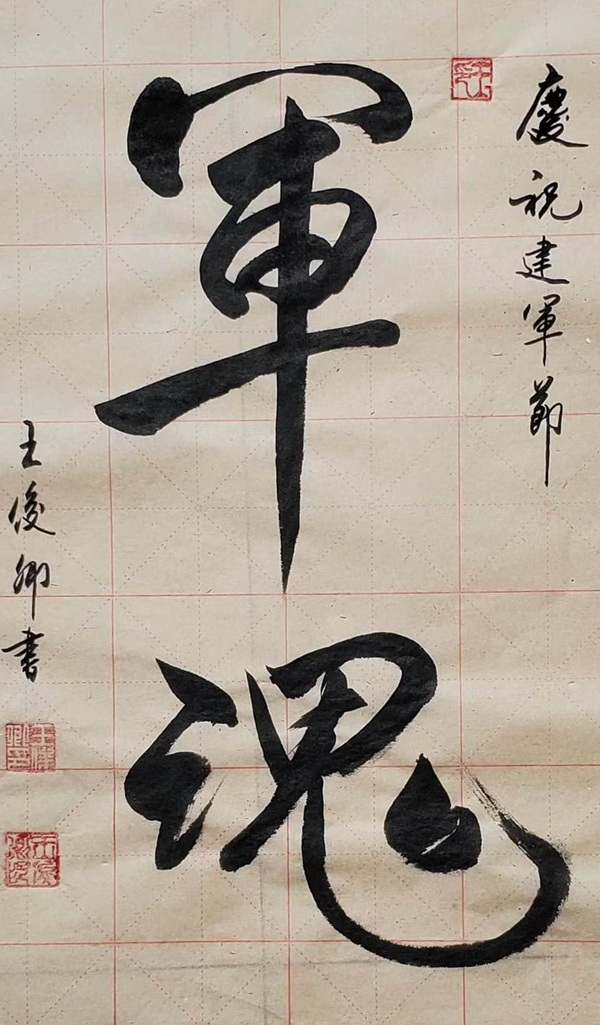 慶祝建軍節
軍魂
王俊卿书